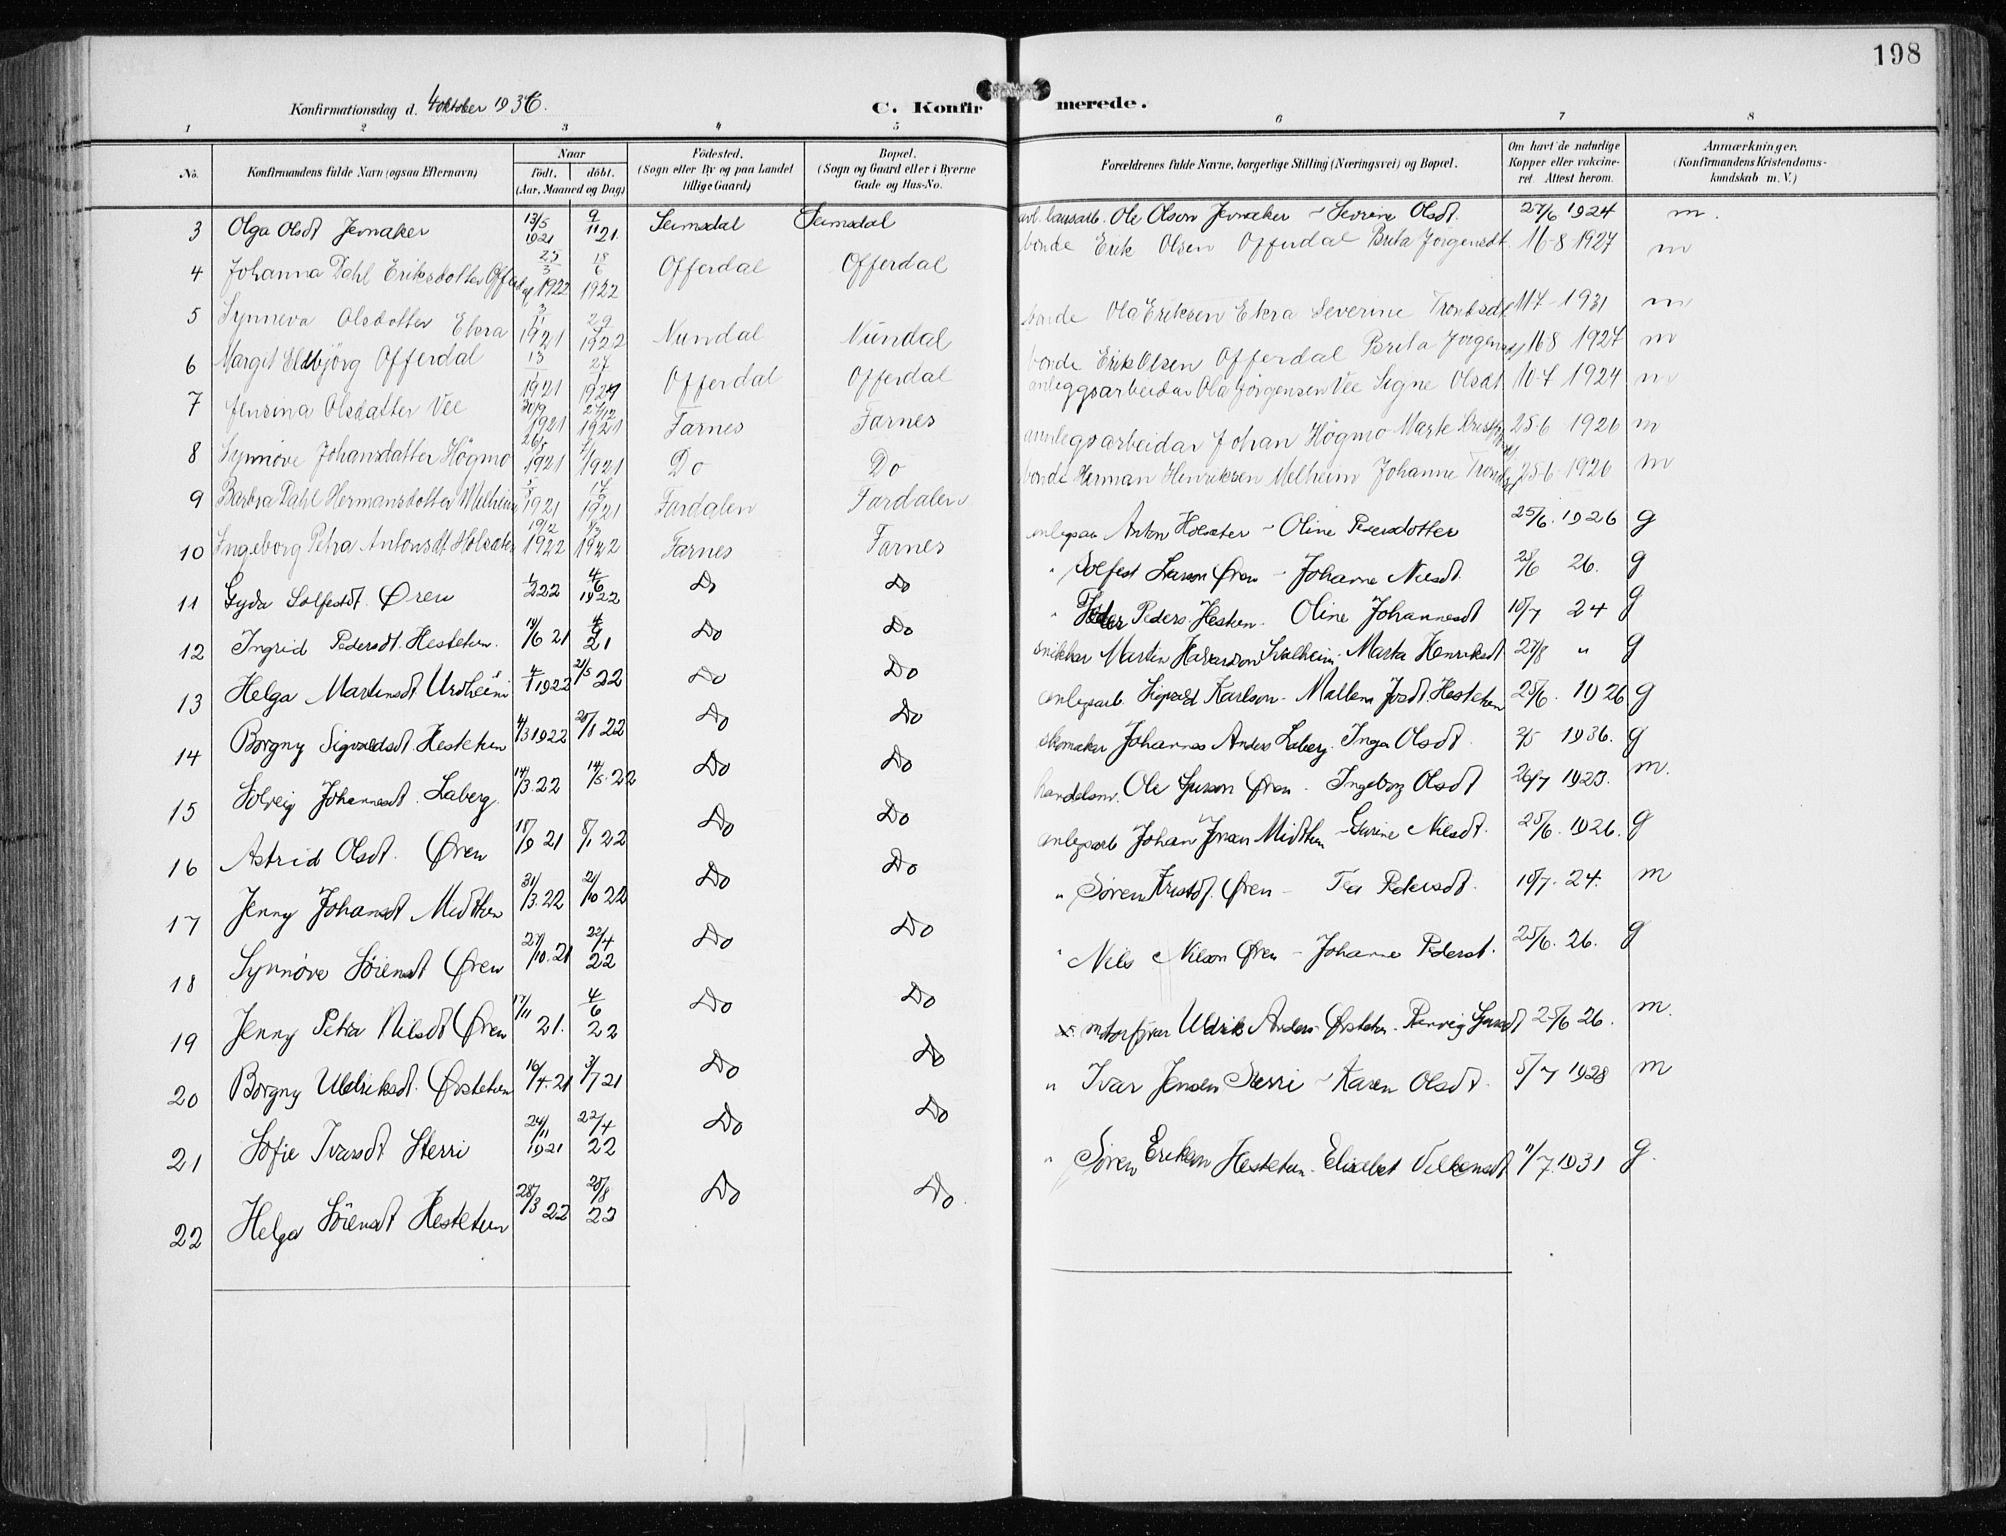 198
Konfirmationsdag d. 4 oktober 1936.
C. Konfirmerede.
1 2 3 4 5 6 7 8
No.
Konfirmandens fulde Navn (ogsaa Efternavn)
Naar
födt. döbt.
(Aar, Maaned og Dag)
Födested.
(Sogn eller By og paa Landet
tillige Gaard)
Bopæl.
(Sogn og Gaard eller i Byerne
Gade og Hus-No.
Forældrenes fulde Navne, borgerlige Stilling (Næringsvei) og Bopæl.
Om havt de naturlige
Kopper eller vakcine-
ret. Attest herom.
Anmærkninger.
(Konfirmandens Kristendoms-
kundskab m. V.)
3 Olga Olsdt Jevnaker 13/5 1921 9/11 21. Seimsdal Seimsdal Ole Olson Jevnaker - Sevrine Olsdt. 27/6 1924 m.
4 Johanna Dahl Eriksdotter Offerdal 25/3 1922 18/6 1922 Offerdal Offerdal bonde Erik Olsen Offerdal Brita Jörgensdt 16-8 1927 m
5 Synneva Olsdotter Ekra 3/11 1921 1922 Nundal Nundal bonde Ola Eriksen Ekra Severine Trondsdt 11-7 1931 m
6 Margit Eldbjörg Offerdal 1921 Offerdal Offerdal bonde Erik Olsen Offerdal Brita Jörgensdt 16-8 1927 m
7 Jensina Olsdatter Vee 30/9 1921 27/12 1921 Farnes Farnes anleggsarbeidar Ola Jörgensen Vee Signe Olsdt 10-7 1924 m
8 Synnöve Johansdatter Högmo 26/5 1921 1921 Do Do annlegsarbeidar Johan Högmo Marte 25-6 1926 m
9 Barbra Dahl Hermansdotter Melheim 1921 1921 Fardalen Fardalen bonde Herman Henriksen Melheim Johanne Trondsdt 25-6 1926 m
10 Ingeborg Petra Antonsdt Holsæter 19/2 1922 1922 Farnes Farnes anlegsar Anton Holsæter - Oline Pedersdotter 25/6. 1926 g
11 Gyda Solfestdt. Øren 1/2 22 4/6 1922 Do Do " Solfest Larson Øren - Johanne Nilsdt. 25/6 26. g
12 Ingrid Pedersdt. Hestetun. 19/6 21 21 Do Do " Peder Peders Hestun. Oline Johannesdt 10/7 24 g
13 Helga Martinsdt Urdheim 4/1 1922 21/5 22 Do Do snikkar Martin Halvardson - Marta Henriksdt 27/8 " g
14 Borgny Sigvaldsdt. Hestetun 4/3 1922 22 Do Do anlegsarb. Sigvald Karlson - Hestetun 25/6. 1926 g
15 Solveig Johannesdt. Laberg. 14/3. 22 14/5. 22 Do Do skomakar Johannes Anders Laberg. Inga Olsdt. 2/5 1936. g
16 Astrid Olsdt. Øren 15/9 21 8/1 22 Do Do handelsm. Ole Øren - Ingeborg Olsdt 26/7 1923. m.
17 Jenny Johansdt Midtun 31/3. 22 22 Do Do anlegsarb Johan Midtun - Nilsdt. 25/6. 1926. g
18 Synnöve Sörensdt Øren 27/10. 21 22/4 22 Do Do " Sören Kristof. Øren - Tea Pedersdt. 10/7. 24. m
19 Jenny Petra Nilsdt Øren 17/11 21. 4/6 22 Do Do " Nils Nilson Øren - Johanne Pederst. 25/6. 26. g
20 Borgny Uldriksdt. Øvstetun 16/4. 21 3/7 21 Do Do motorförar Uldrik Anders Øvstetun. 25/6 26. m.
21 Sofie Ivarsdt Sterri 24/11 1921 22/4 22 Do Do " Ivar Jensen Sterri - Karen Olsdt. 5/7 1928 m
22 Helga Sörensdt Hestetun 28/3 22 20/8 22 Do Do. " Sören Erikson Hestetun. Elisebet 11/7. 1931 g.